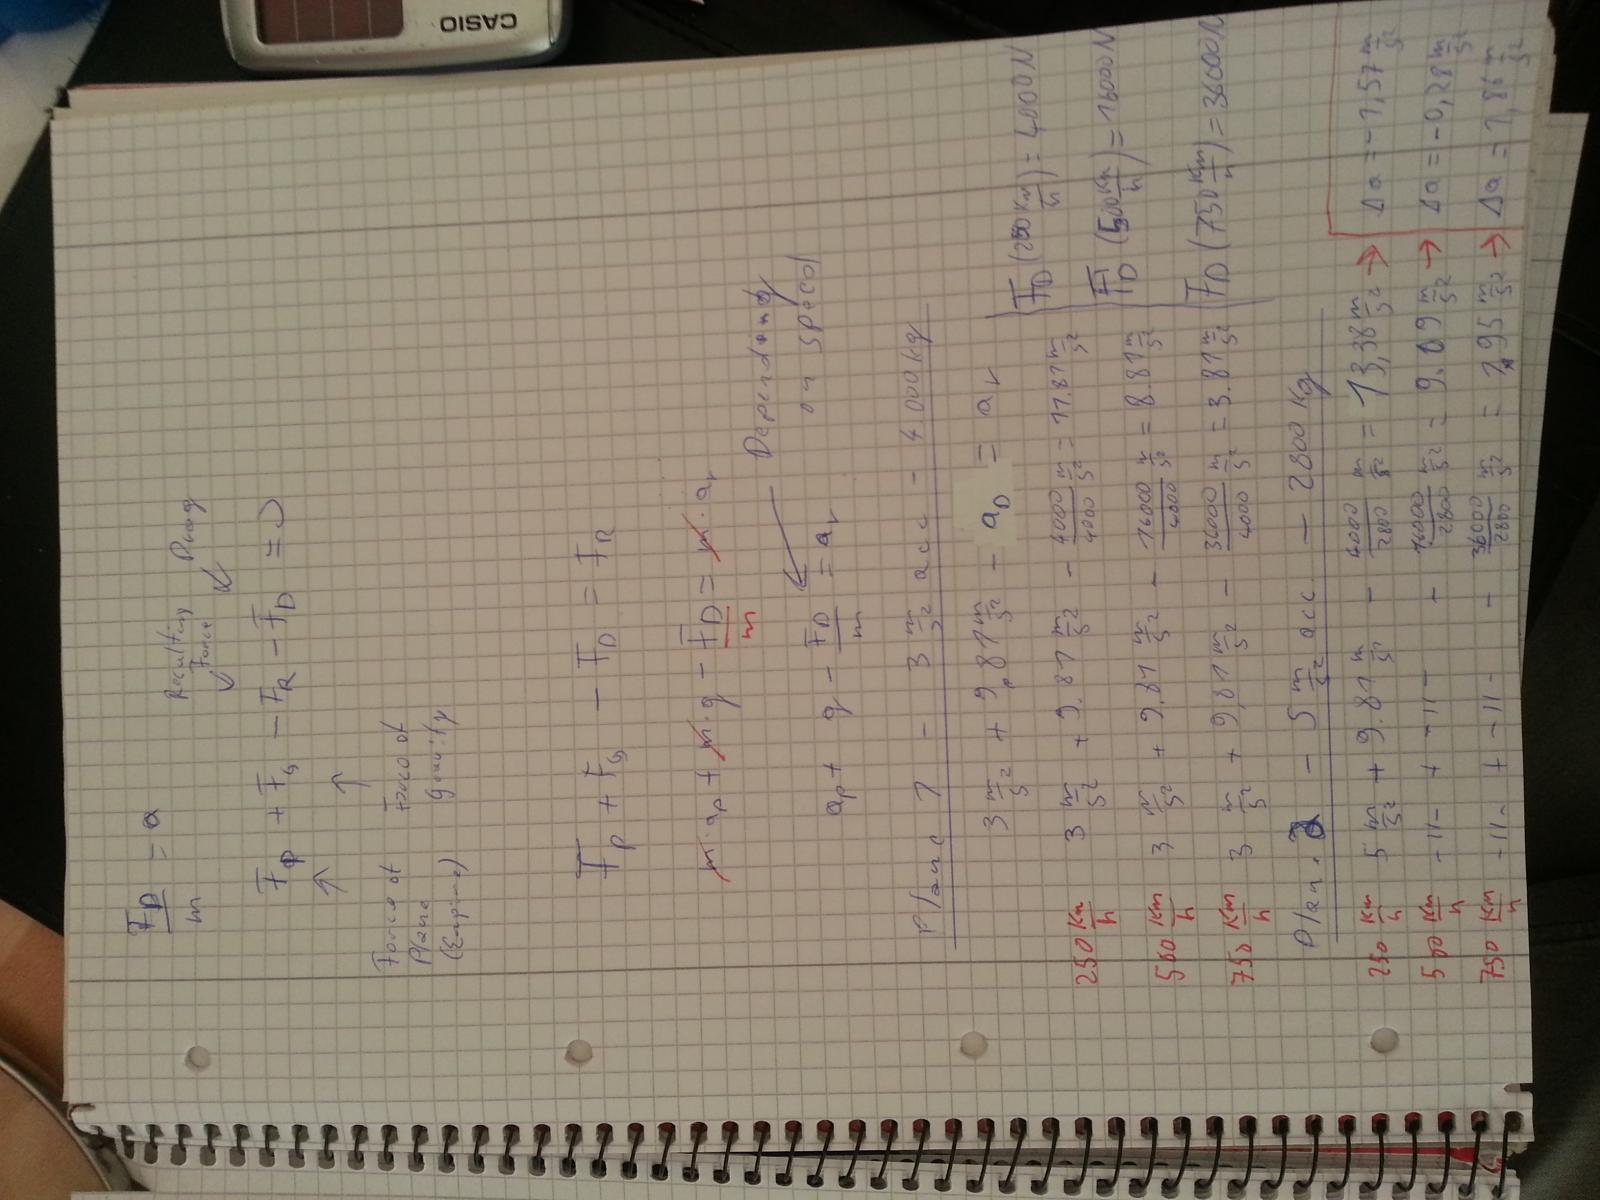 CASIO
F_D/m = a
Resulting Force
Drag
F_P + F_G − F_R − F_D = 0
↑ ↑
Force of Plane (Engine)
Force of gravity
F_P + F_G − F_D = F_R
m·a_P + m·g − F_D/m = m·a_r
Depending on speed
a_P + g − F_D/m = a_r
Plane 1 - 3 m/s² acc - 4000kg
3 m/s² + 9,81 m/s² − a_D = a_r
F_D (250 Km/h) = 4000N
250 Km/h 3 m/s² + 9.81 m/s² − 4000/4000 m/s² = 11.81 m/s²
F_D (500 Km/h) = 16000N
500 Km/h 3 m/s² + 9.81 m/s² − 16000/4000 m/s² = 8.81 m/s²
F_D (750 Km/h) = 36000N
750 Km/h 3 m/s² + 9,81 m/s² − 36000/4000 m/s² = 3.81 m/s²
Plan. 2 - 5 m/s² acc. - 2800 Kg
250 Km/h 5 m/s² + 9.81 m/s² − 4000/2800 m/s² = 13,38 m/s² → Δa = -1,57 m/s²
500 Km/h -11- + -11- − 16000/2800 m/s² = 9.09 m/s² → Δa = -0,28 m/s²
750 Km/h -11- + -11- − 36000/2800 m/s² = 1,95 m/s² → Δa = 1,86 m/s²